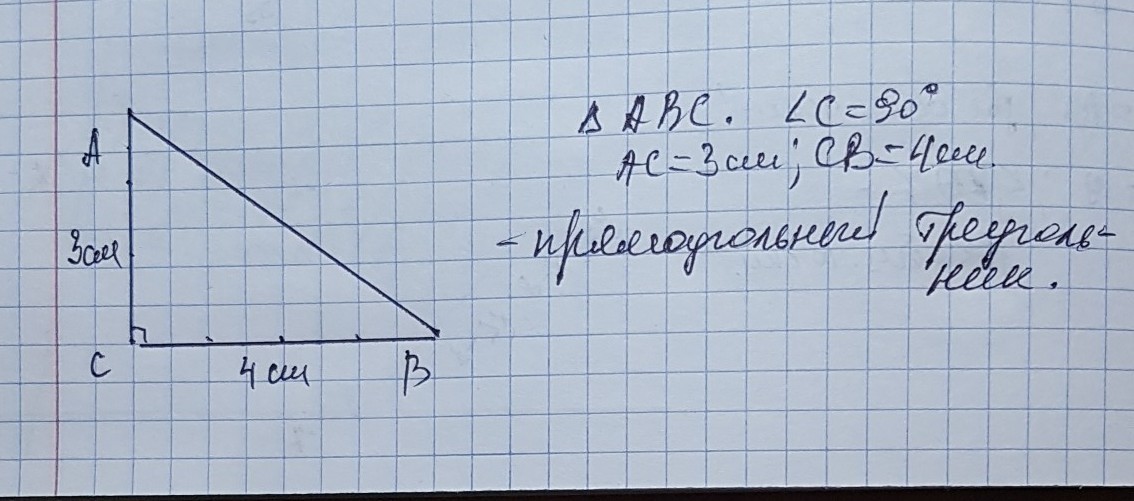 A
3см
C
4 см
B
Δ ABC. ∠C=90°
AC=3см; CB=4см.
- прямоугольный треуголь-
ник.